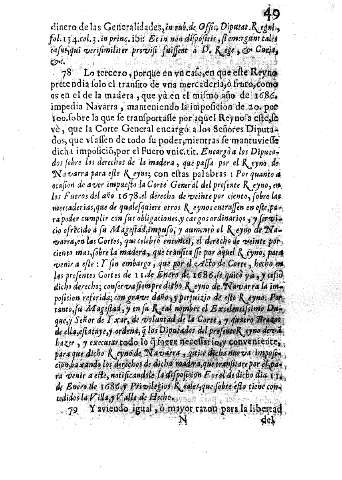 49
dinero de las Generalidades, in rub. de Offic. Diputat. Regni,
fol. 154. col. 3. in princ. ibi: Et in non dispositis, si emergant tales
casus, qui verisimiliter provisi fuissent à D. Rege, & Curia,
&c.
78 Lo tercero, porque en vn caso, en que este Reyno
pretendia solo el transito de vna mercaderia, ò fruto, como
es en el de la madera, que yà en el mismo año de 1686.
impedia Navarra, manteniendo la imposicion de 20. por
100. sobre la que se transportasse por aquel Reyno à este, se
vè, que la Corte General encargò à los Señores Diputa-
dos, que vsassen de todo su poder, mientras se mantuviesse
dicha imposicion, por el Fuero vnic. tit. Encargo à los Diputa-
dos sobre los derechos de la madera, que passa por el Reyno de
Navarra para este Reyno; con estas palabras: Por quanto à
ocasion de aver impuesto la Corte General del presente Reyno, en
los Fueros del año 1678. el derecho de veinte por ciento, sobre las
mercaderias, que de qualesquiere otros Reynos entrassen en este, pa-
ra poder cumplir con sus obligaciones, y cargos ordinarios, y servi-
cio ofrecido à su Magestad, impuso, y aumentò el Reyno de Na-
varra, en las Cortes, que celebrò entonces, el derecho de veinte por
ciento mas, sobre la madera, que transita por aquel Reyno, para
venir à este: Y sin embargo, que por el Acto de Corte, hecho en
las presentes Cortes de 11. de Enero de 1686. se quitò yà, y cessò
dicho derecho; conserva siempre dicho Reyno de Navarra la im-
posicion referida; con grave daño, y perjuizio de este Reyno: Por
tanto, su Magestad, y en su Real nombre el Excelentissimo Du-
que, y Señor de Yxar, de voluntad de la Corte, y quatro Brazos
de ella, estatuye, y ordena, q̃ los Diputados del presente Reyno devã
hazer, y executar todo lo q̃ fuere necessario, y conveniente,
para que dicho Reyno de Navarra, quite dicha nueva imposi-
ción, baxando los derechos de dicha madera, que transitare por el, pa-
ra venir à este, notificandole la disposicion Foral de dicho dia 11.
de Enero de 1686. y Privilegios Reales, que sobre esto tiene con-
cedidos la Villa, y Valle de Hecho.
79 Y aviendo igual, ò mayor razon para la libertad
N del